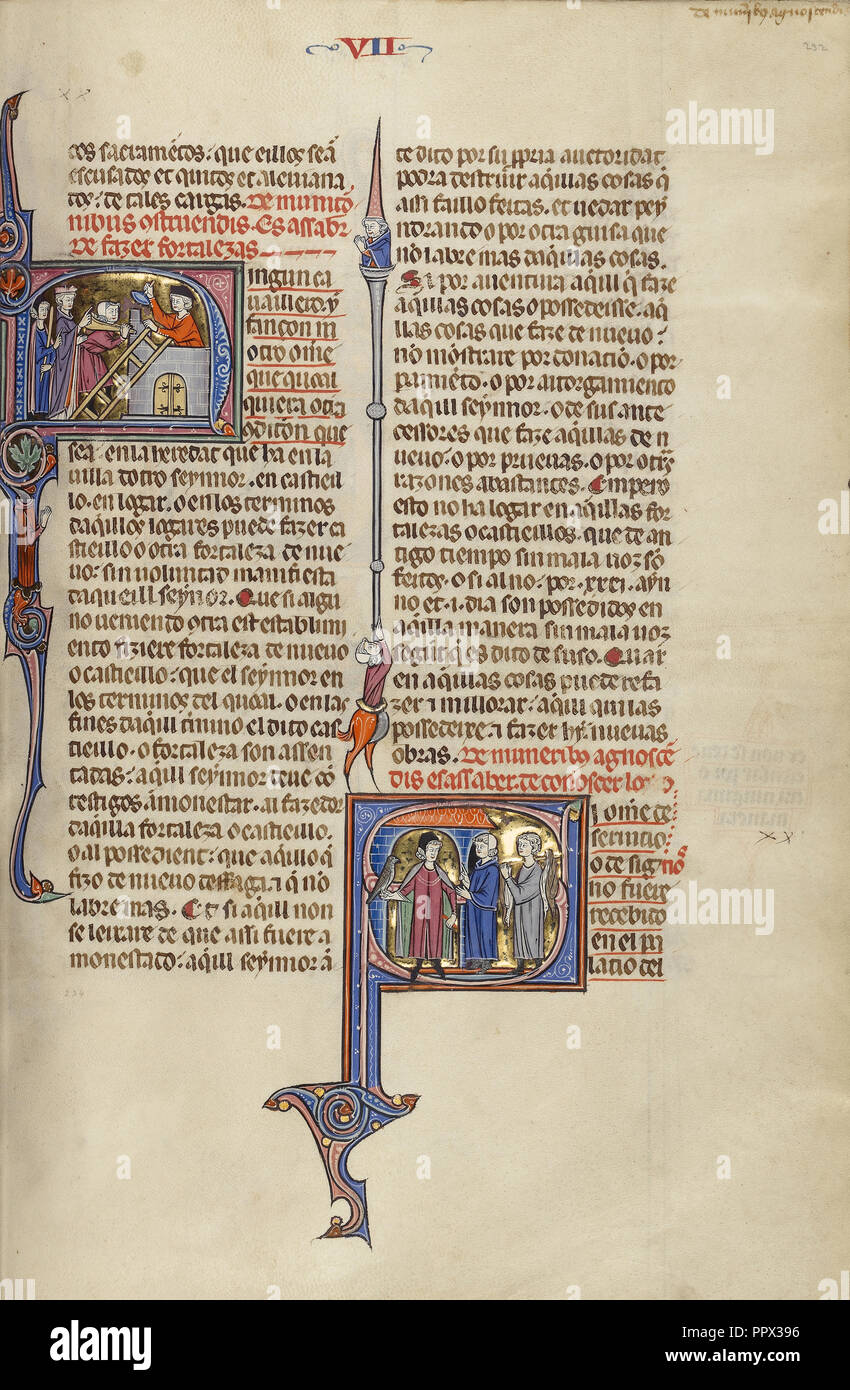 de munibus agnoscendis
292
VII
tos sacrametos: que eillos sea
escusados et quitos et aleuiana
dos: de tales cargas. De munitio
nibus ostruendis. Es assaber
de fazer fortalezas
ingun ca
uaillero. y
fançon ni
otro ome
que qual
quiera otra
odicion que
sea. en la heredat que ha en la
uilla dotro seynnor. en castieil
lo. en logar. o en los terminos
daquillos logares puede fazer ca
stieillo o otra fortaleza de nue
uo: sin uoluntad manifiesta
daqueill seynor. Que si algu
no ueniendo otra est establimi
ento fiziere fortaleza de nueuo
o castieillo: que el seynnor en
los terminos del qual. o en las
fines daquil termino el dito cas
tieillo. o fortaleza son assen
tadas: aquil seynnor deue con
testigos amonestar. al fazedor
daquilla fortaleza o castieillo.
o al possedient: que aquillo que
fizo de nueuo desfaga: i que no
labre mas. Et si aquil non
se leixare de que assi fuere a
monestado: aquil seynnor an
te dito por su propria auctoridat
podra destruir aquillas cosas que
assi faillo feitas. et uedar pey
ndrando o por otra guisa que
no labre mas daquillas cosas.
Si por auentura aquil que faze
aquillas cosas o possedeisse. aqui
llas cosas que faze de nueuo:
no mostrare por donacion. o por
paramiento. o por atorgamiento
daquill seynnor. o de sus ante
cessores que faze aquillas de n
ueuo: o por prueuas. o por otras
razones abastantes. Empero
esto no ha logar en aquillas for
talezas o castieillos. que de an
tigo tiempo sin mala uoz son
feitos. o si al no: por. xxxi. ayn
no et .i. dia son possedidos en
aquilla manera sin mala uoz
segunt que es dito de suso. Quar
en aquillas cosas puede refa
zer i millorar: aquil qui las
possedeixe: i fazer hy nueuas
obras. De muneribus agnoscen
dis es assaber. de conoscer los
i ome de
seruitio:
o de signo
no fuere
recebito
en el pa
latio del
234
alamy
alamy
Image ID: PPX396
www.alamy.com